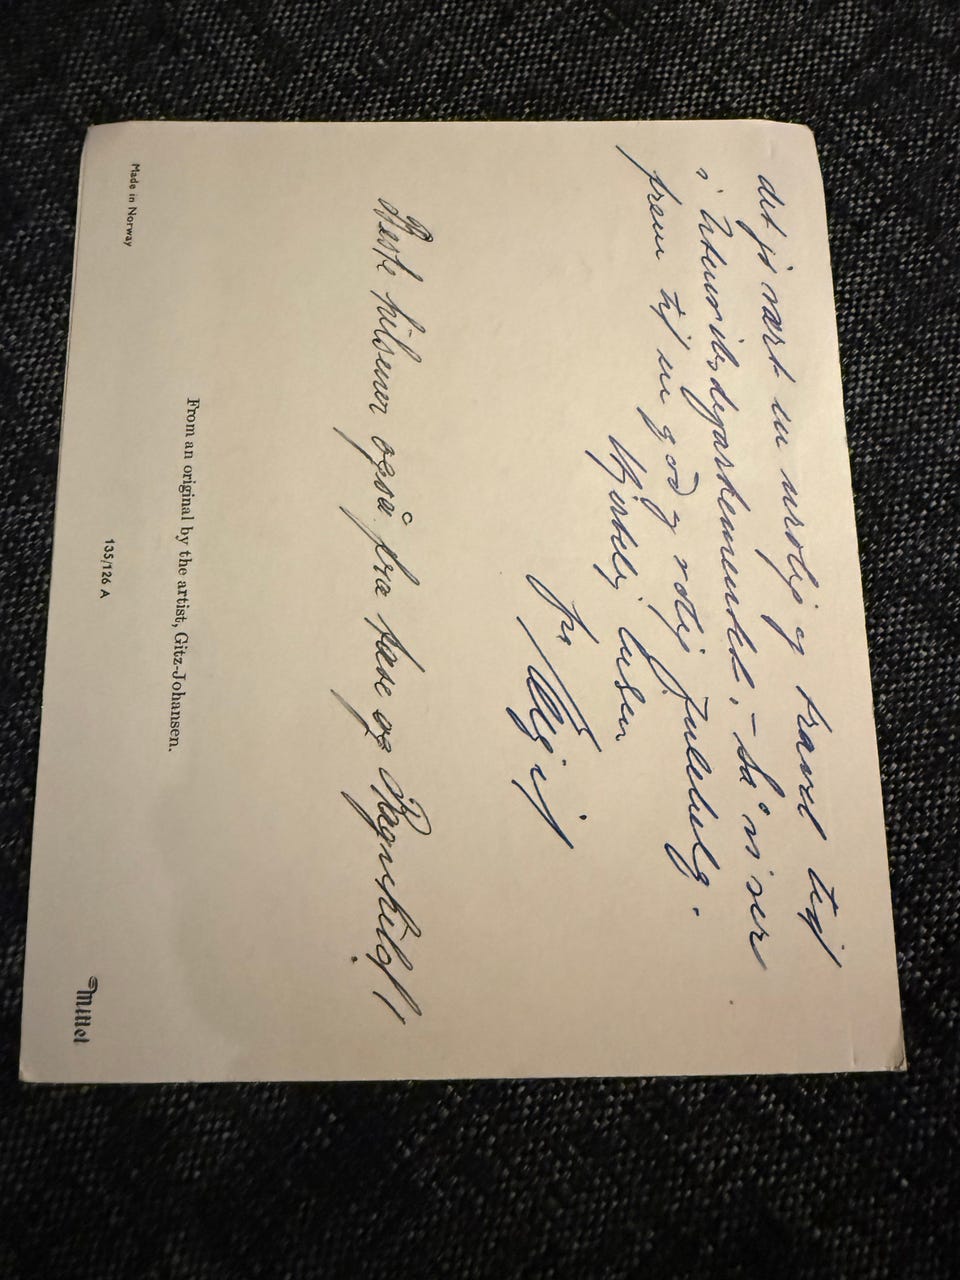 det j. vært en urolig og travel tid
i Utenriksdepartementet, – så vi ser
frem til en god og rolig julehelg.
Hjertelig hilsen
fra
Beste hilsener også fra Lasse og Ragnhild!
From an original by the artist, Gitz-Johansen.
Made in Norway
135/126 A
Mittet